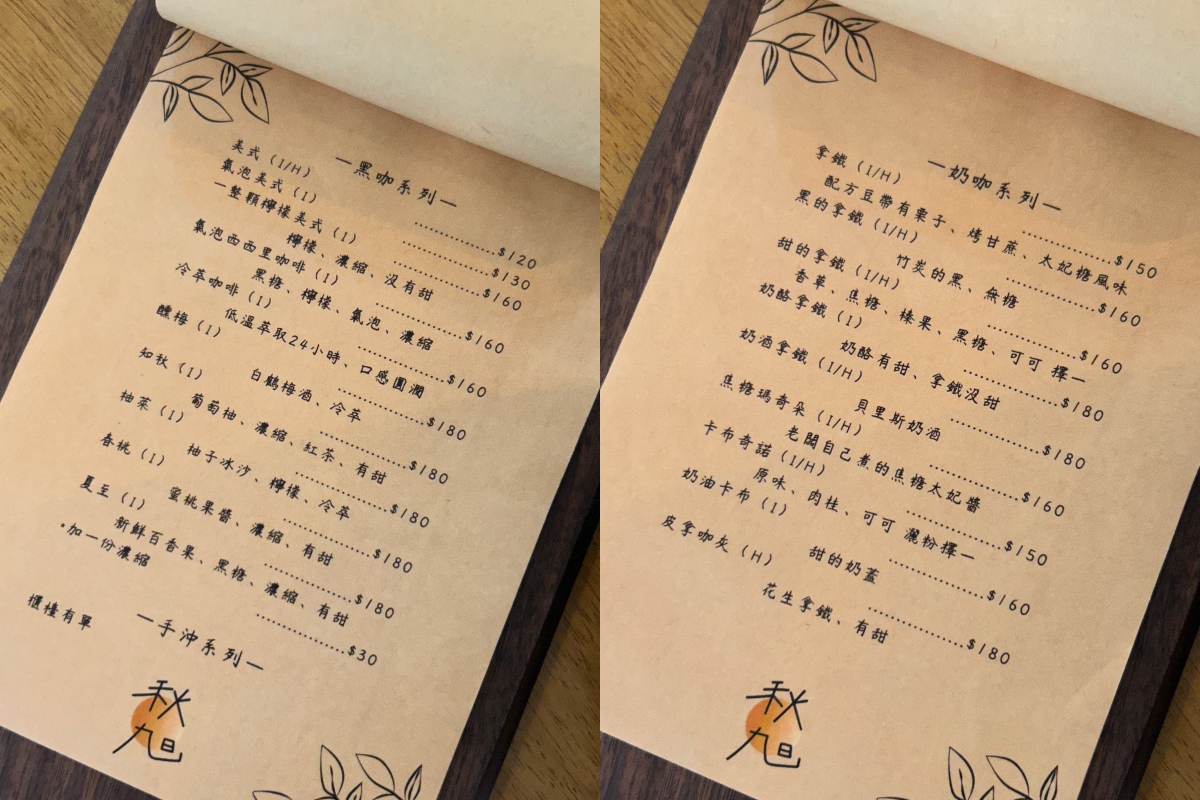 —黑咖系列—
美式 (I/H) ...............$120
氣泡美式 (I) ...............$130
一整顆檸檬美式 (I) ...............$160
檸檬、濃縮、沒有甜
氣泡西西里咖啡 (I) ...............$160
黑糖、檸檬、氣泡、濃縮
冷萃咖啡 (I) ...............$160
低溫萃取24小時、口感圓潤
醺梅 (I) ...............$180
白鶴梅酒、冷萃
知秋 (I) ...............$180
葡萄柚、濃縮、紅茶、有甜
柚菜 (I) ...............$180
柚子冰沙、檸檬、冷萃
春桃 (I) ...............$180
蜜桃果醬、濃縮、有甜
夏至 (I) ...............$180
新鮮百香果、黑糖、濃縮、有甜
*加一份濃縮 ...............$30
—手沖系列—
櫃檯有單
秋旭
—奶咖系列—
拿鐵 (I/H) ...............$150
配方豆帶有栗子、烤甘蔗、太妃糖風味
黑的拿鐵 (I/H) ...............$160
竹炭的黑、無糖
甜的拿鐵 (I/H) ...............$160
香草、焦糖、榛果、黑糖、可可 擇一
奶酪拿鐵 (I) ...............$180
奶酪有甜、拿鐵沒甜
奶酒拿鐵 (I/H) ...............$180
貝里斯奶酒
焦糖瑪奇朵 (I/H) ...............$160
老闆自己煮的焦糖太妃醬
卡布奇諾 (I/H) ...............$150
原味、肉桂、可可 灑粉擇一
奶油卡布 (I) ...............$160
甜的奶蓋
皮拿咖灰 (H) ...............$180
花生拿鐵、有甜
秋旭